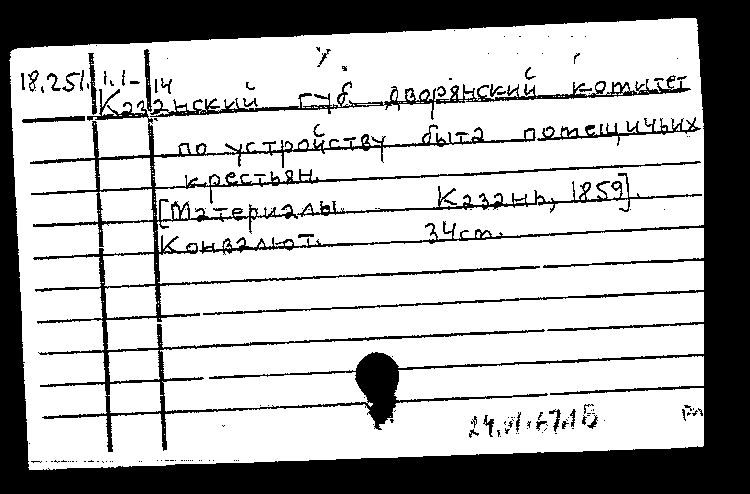 У.
18.251.1.1-14
Казанский губ. дворянский комитет
по устройству быта помещичьих
крестьян.
[Материалы. Казань, 1859].
Конволют. 34 ст.